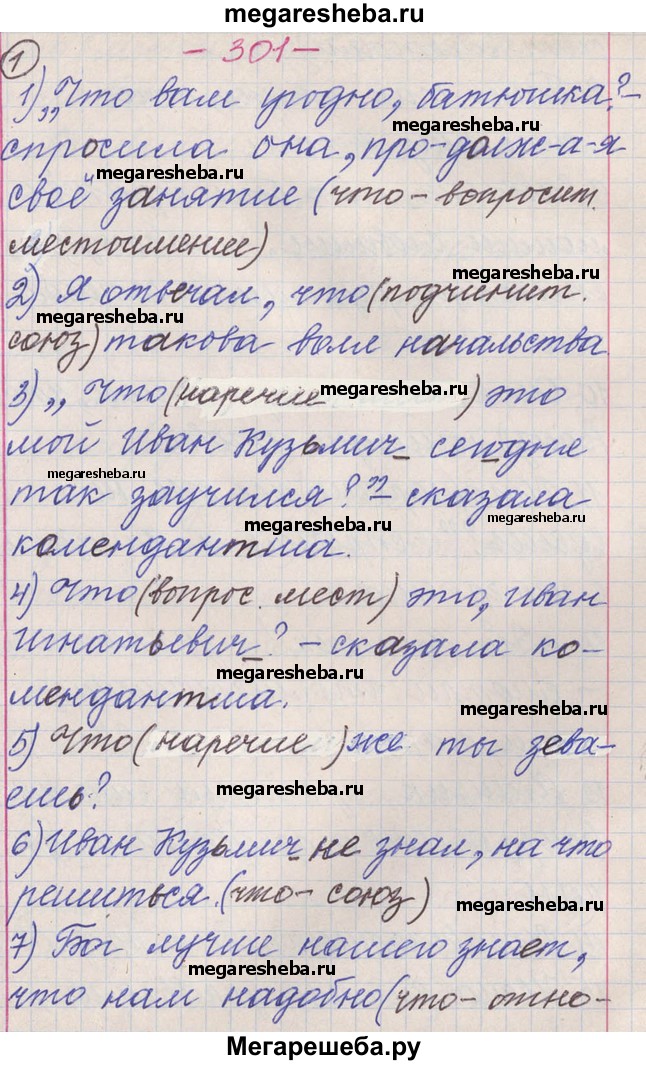 megaresheba.ru
1
- 301 -
1) „Что вам угодно, батюшка?-
megaresheba.ru
спросила она, про-долж-а-я
своё занятие (что - вопросит.
местоимение)
megaresheba.ru
2) Я отвечал, что (подчинит.
megaresheba.ru
союз) такова воля начальства
3) „Что (наречие) это
megaresheba.ru
мой Иван Кузьмич сегодня
megaresheba.ru
так заучился?” - сказала
megaresheba.ru
megaresheba.ru
комендантша.
4) Что (вопрос. мест) это, Иван
Игнатьевич? - сказала ко-
megaresheba.ru
мендантша.
megaresheba.ru
5) Что (наречие) же ты зева-
ешь?
megaresheba.ru
6) Иван Кузьмич не знал, на что
решиться. (что - союз)
megaresheba.ru
7) Бог лучше нашего знает,
megaresheba.ru
что нам надобно (что - отно-
Мегарешеба.ру